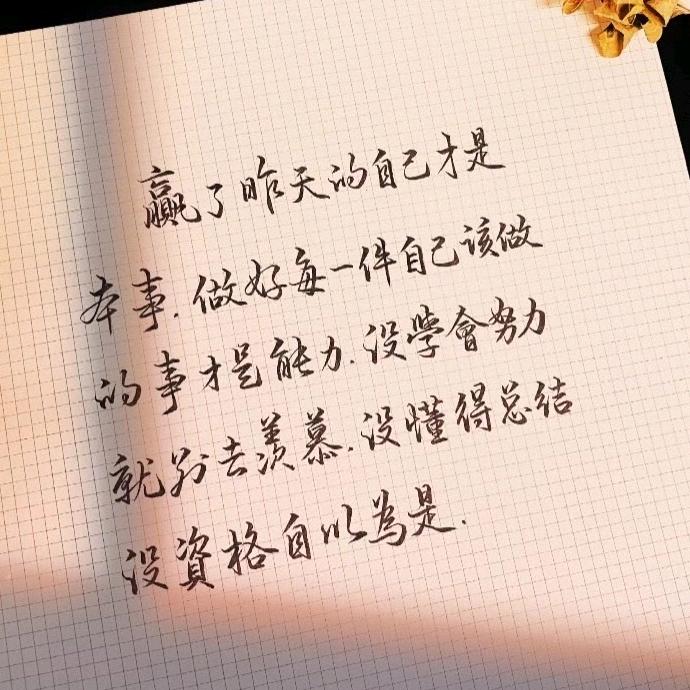 赢了昨天的自己才是
本事.做好每一件自己该做
的事才是能力.没學會努力
就别去羡慕.没懂得总结
没資格自以為是.